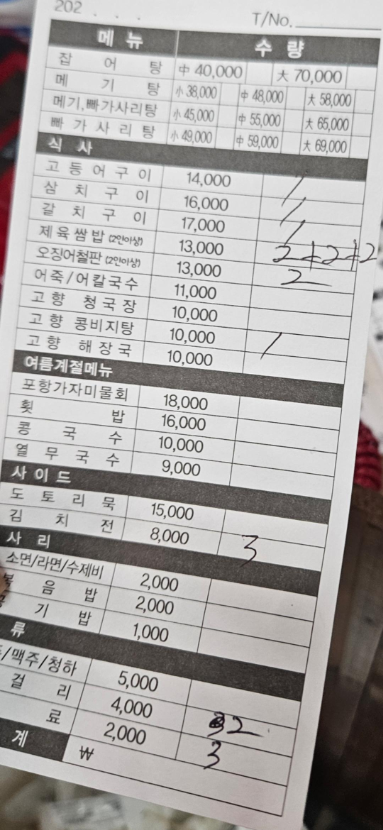 202 . . .
T/No.
메 뉴 수 량
잡 어 탕 中 40,000 大 70,000
메 기 탕 小 38,000 中 48,000 大 58,000
메기,빠가사리탕 小 45,000 中 55,000 大 65,000
빠 가 사 리 탕 小 49,000 中 59,000 大 69,000
식 사
고 등 어 구 이 14,000 /
삼 치 구 이 16,000 /
갈 치 구 이 17,000 /
제육쌈밥 (2인이상) 13,000 2+2+2
오징어철판 (2인이상) 13,000 2
어죽/어칼국수 11,000
고 향 청 국 장 10,000
고향 콩비지탕 10,000 /
고 향 해 장 국 10,000
여름계절메뉴
포항가자미물회 18,000
횟 밥 16,000
콩 국 수 10,000
열 무 국 수 9,000
사 이 드
도 토 리 묵 15,000
김 치 전 8,000 3
사 리
소면/라면/수제비 2,000
음 밥 2,000
기 밥 1,000
류
/맥주/청하 5,000
걸 리 4,000 2
료 2,000 3
계 ₩